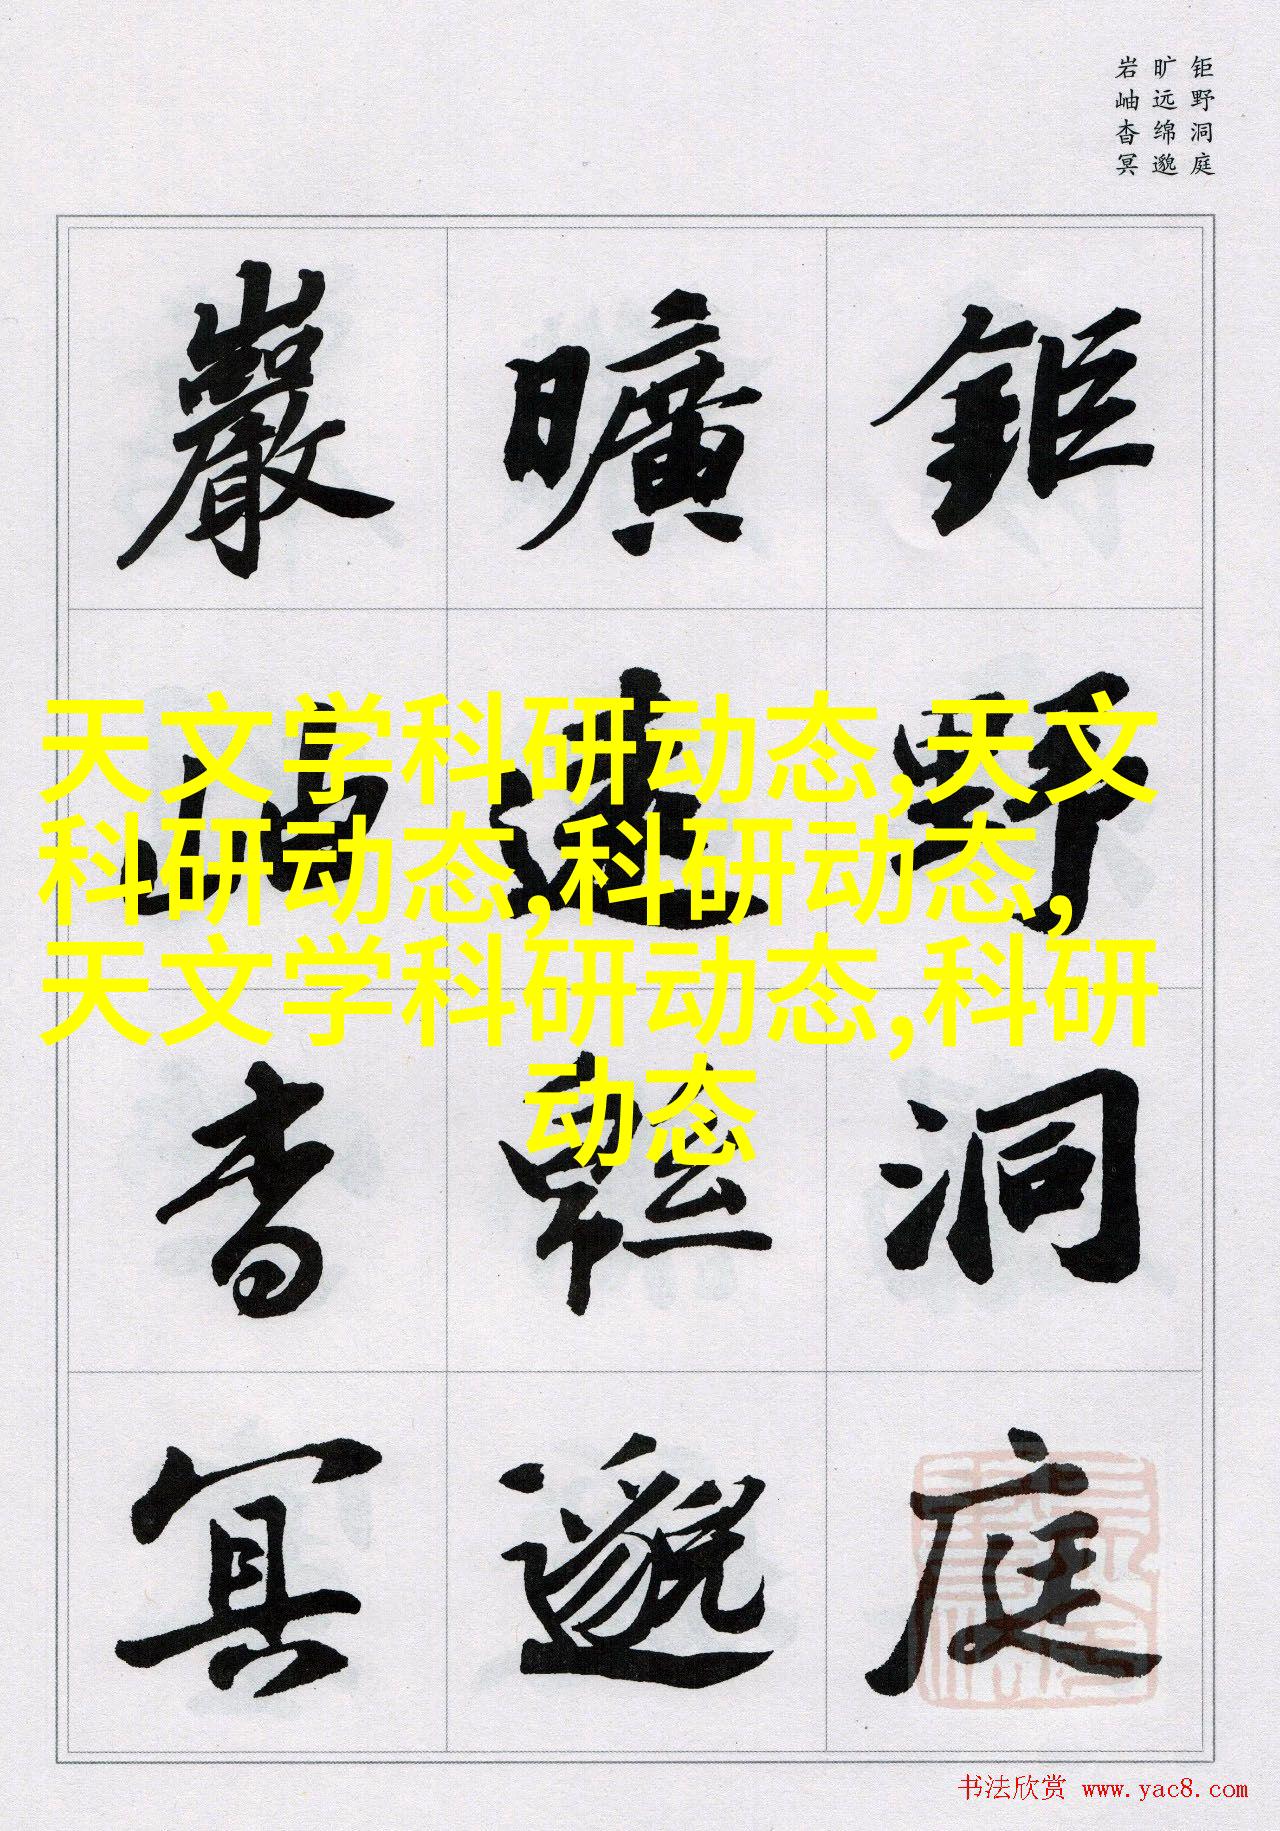 钜野洞庭
旷远绵邈
岩岫杳冥
鉅野洞庭
曠遠緜邈
巖岫杳冥
天文学科研动态,天文
科研动态,科研动态,
天文学科研动态,科研
动态
书法欣赏 www.yac8.com